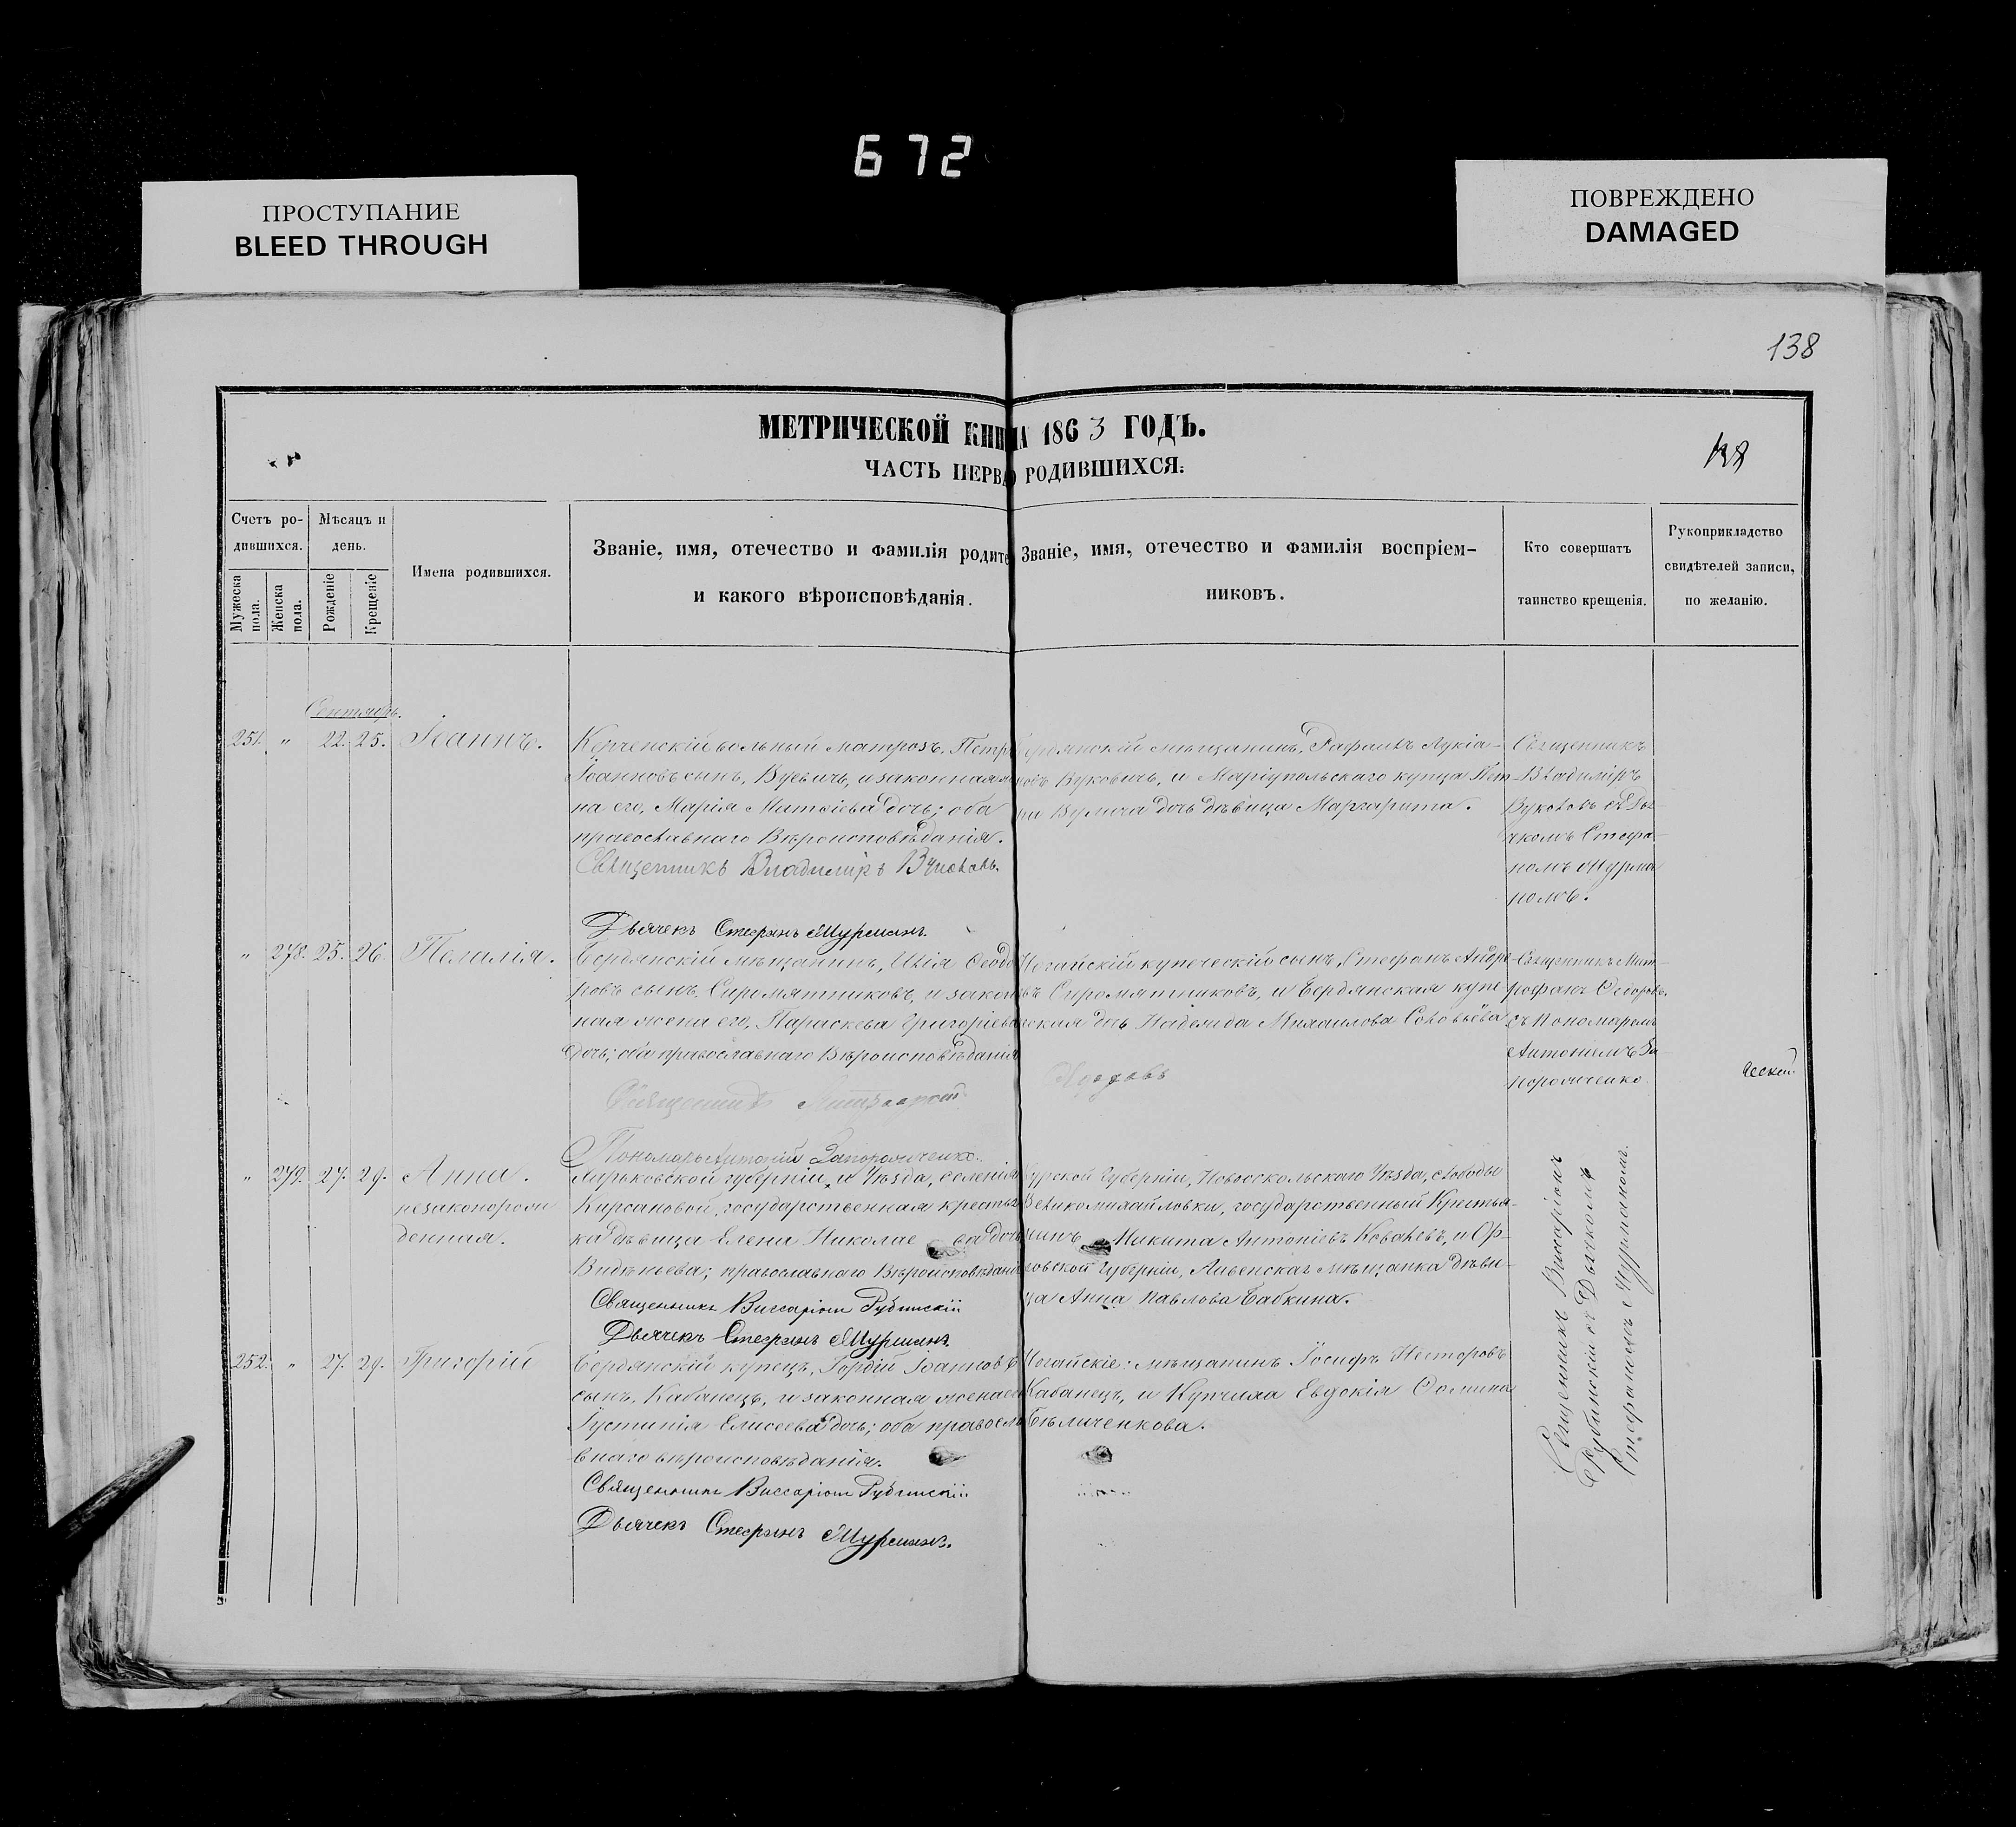 672
ПРОСТУПАНИЕ
BLEED THROUGH
ПОВРЕЖДЕНО
DAMAGED
138
МЕТРИЧЕСКОЙ КНИ А 1863 ГОДЪ.
ЧАСТЬ ПЕРВА О РОДИВШИХСЯ.
138
Счетъ ро-
дившихся.
Мужеска пола.
Женска пола.
Мѣсяцъ и
день.
Рожденіе
Крещеніе
Имена родившихся.
Званіе, имя, отечество и фамилія родите
и какого вѣроисповѣданія.
Званіе, имя, отечество и фамилія воспріем-
никовъ.
Кто совершатъ
таинство крещенія.
Рукоприкладство
свидѣтелей записи,
по желанію.
Сентябрь.
251. " 22. 25. Іоаннъ.
Керченскій вольный матрозъ, Петръ
Іоанновъ сынъ, Вуевичъ, и законная же
на его, Марія Матѳіева дочь; оба
православнаго Вѣроисповѣданія.
Священникъ Владиміръ
Дьячекъ Стефанъ Мурманъ.
Бердянскій мѣщанинъ, Рафаилъ Лукіа-
новъ Вуковичъ, и Маріупольскаго купца Пет-
ра дочь дѣвица Маргарита.
Священникъ
Владиміръ
съ Дья-
чкомъ Стефа-
номъ Мурма-
номъ.
" 278. 25. 26. Пелагія.
Бердянскій мѣщанинъ, Илія Ѳеодо
ровъ сынъ, Сиромятниковъ, и закон
ная жена его, Параскева Григоріева
дочь; оба православнаго Вѣроисповѣданія
Священникъ Митрофанъ
Пономарь Антоній Запорожченко.
Ногайскій купеческій сынъ, Стефанъ Андре-
въ Сиромятниковъ, и Бердянская купе
ческая дочь Надежда Михаилова Соловьёва
Священникъ Мит-
рофанъ Ѳедоровъ
съ Пономаремъ
Антоніемъ За-
порожченко.
" 279. 27. 29. Анна.
незаконорож
денная.
Харьковской губерніи, и Уѣзда, селенія
Кирсановой, государственная крестьян
ка дѣвица Елена Николаева дочь
православнаго Вѣроисповѣданія
Священникъ Виссаріонъ Рубинскій
Дьячекъ Стефанъ Мурманъ.
Курской Губерніи, Новооскольскаго Уѣзда, слободы
Великомихайловки, государственный Крестья-
нинъ Никита Антоніевъ Ковалевъ, и Ор-
ловской Губерніи, Ливенская мѣщанка дѣви-
ца Анна Павлова Бабкина.
252. " 27. 29. Григорій
Бердянскій купецъ, Гордій Іоанновъ
сынъ, Кабанецъ, и законная жена его
Іустинія Елисеева дочь; оба правосла
внаго вѣроисповѣданія.
Священникъ Виссаріонъ Рубинскій
Дьячекъ Стефанъ Мурманъ.
Ногайскіе: мѣщанинъ Іосифъ Несторовъ
Кабанецъ, и Купчиха Евдокія Ѳомина
Бѣличенкова.
Священникъ Виссаріонъ
Рубинскій съ Дьячкомъ
Стефаномъ Мурманомъ.